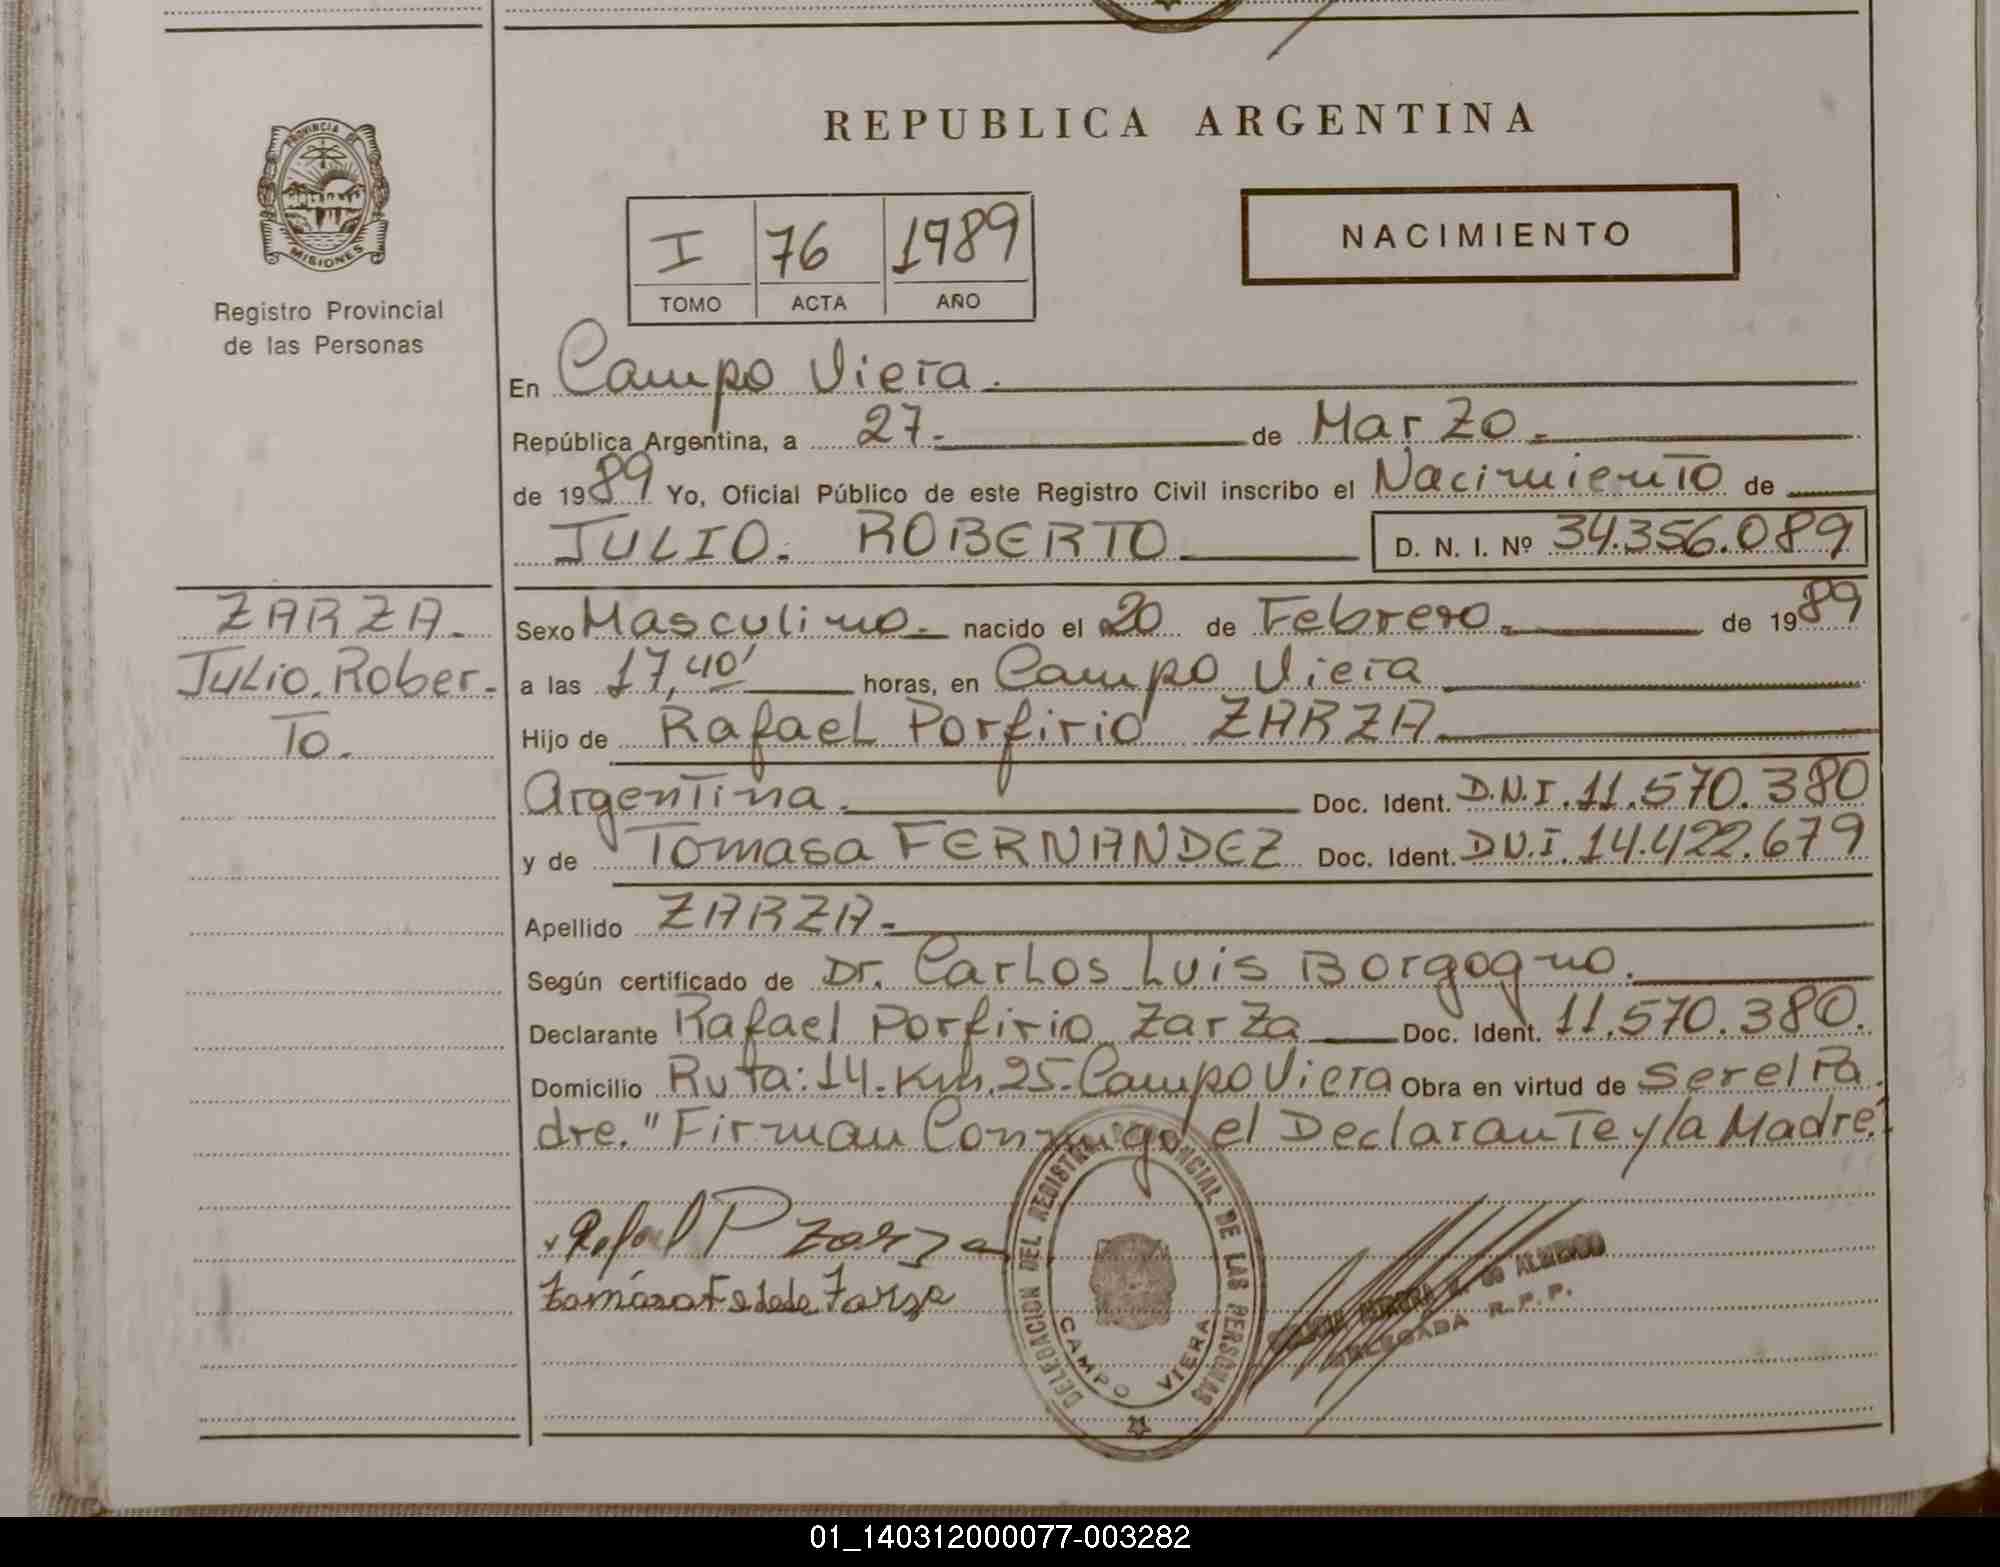 REPUBLICA ARGENTINA
PROVINCIA DE
MISIONES
Registro Provincial
de las Personas
I 76 1989
TOMO ACTA AÑO
NACIMIENTO
En Campo Viera.
República Argentina, a 27- de Marzo.
de 1989 Yo, Oficial Público de este Registro Civil inscribo el Nacimiento de
JULIO. ROBERTO D. N. I. Nº 34.356.089
ZARZA.
Julio. Rober-
To.
Sexo Masculino. nacido el 20 de Febrero. de 1989
a las 17,40' horas, en Campo Viera
Hijo de Rafael Porfirio ZARZA
Argentina. Doc. Ident. D.N.I. 11.570.380
y de Tomasa FERNANDEZ Doc. Ident. D.N.I. 14.422.679
Apellido ZARZA-
Según certificado de Dr. Carlos Luis Borgogno.
Declarante Rafael Porfirio Zarza Doc. Ident. 11.570.380.
Domicilio Ruta: 14. Km. 25. Campo Viera Obra en virtud de ser el Pa
dre. "Firman Conmigo el Declarante y la Madre."
Rafael P Zarza
DELEGACION DEL REGISTRO PROVINCIAL DE LAS PERSONAS
CAMPO VIERA
DE ALMEIDO
DELEGADA R.P.P.
01_140312000077-003282